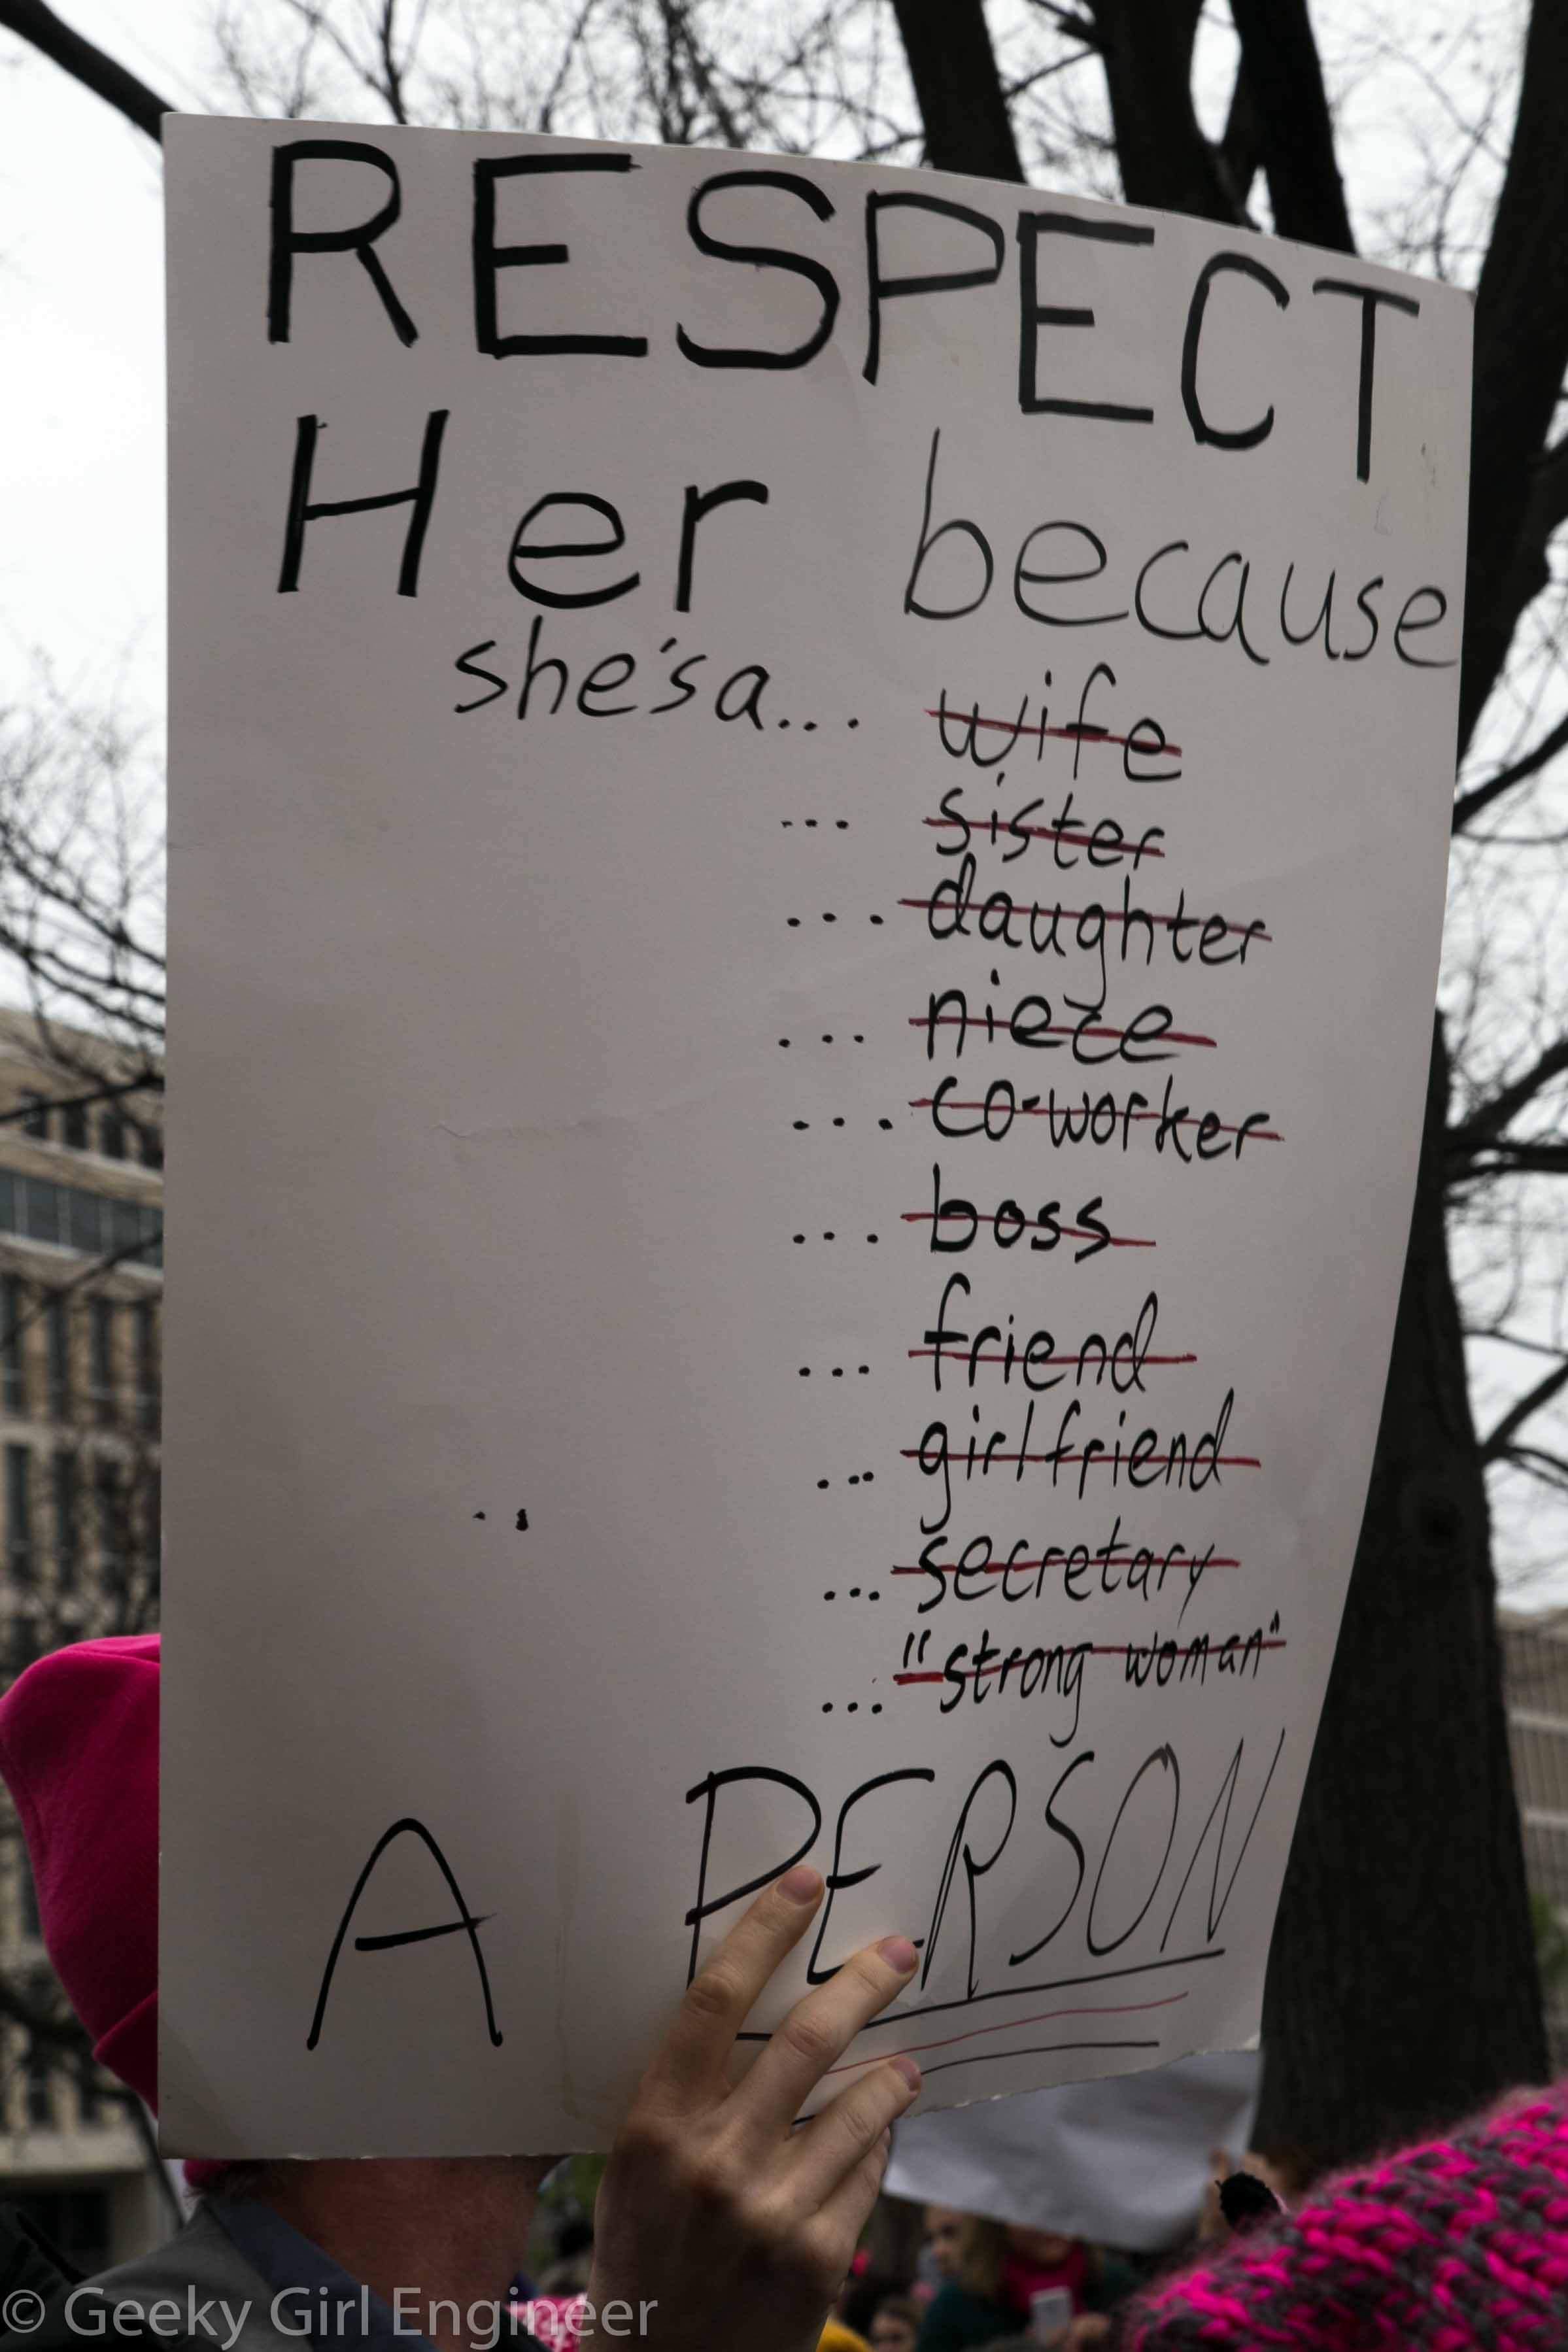 RESPECT
Her because
she's a... wife
... sister
... daughter
... niece
... co-worker
... boss
... friend
... girlfriend
... secretary
... "strong woman"
A PERSON
© Geeky Girl Engineer